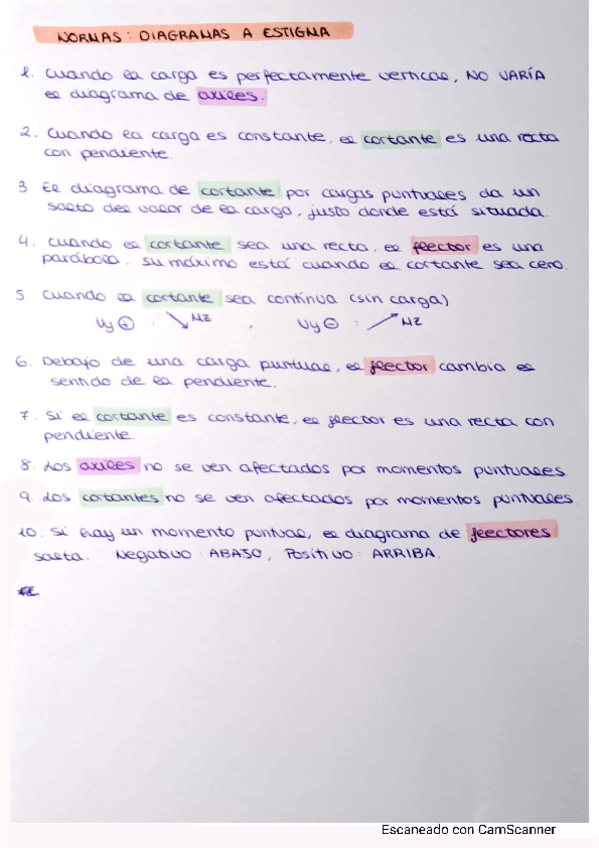 NORMAS: DIAGRAMAS A ESTIGMA
1. Cuando la carga es perfectamente vertical, NO VARÍA
el diagrama de axiles.
2. Cuando la carga es constante, el cortante es una recta
con pendiente.
3 El diagrama de cortante por cargas puntuales da un
salto del valor de la carga, justo donde está situada.
4. Cuando el cortante sea una recta, el flector es una
parábola. Su máximo está cuando el cortante sea cero.
5 Cuando el cortante sea continua (sin carga)
Vy ⊕ : ↘ Mz , Vy ⊖ : ↗ Mz
6. Debajo de una carga puntual, el flector cambia el
sentido de la pendiente.
7. Si el cortante es constante, el flector es una recta con
pendiente.
8. Los axiles no se ven afectados por momentos puntuales
9. Los cortantes no se ven afectados por momentos puntuales
10. Si hay un momento puntual, el diagrama de flectores
salta. Negativo: ABAJO, Positivo: ARRIBA.
Escaneado con CamScanner